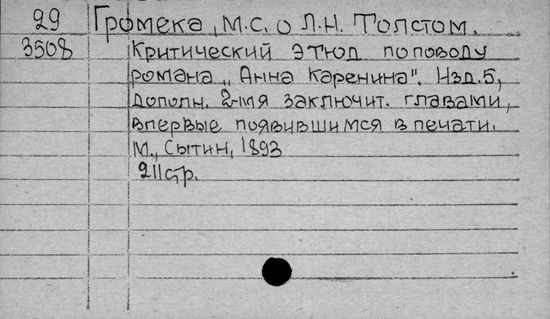 29 Громека, М.С. о Л.Н. Толстом.
3508 Критический этюд по поводу
романа „Анна Каренина". Изд. 5,
дополн. 2-мя заключит. главами,
впервые появившимся в печати.
М., Сытин, 1893
211 стр.